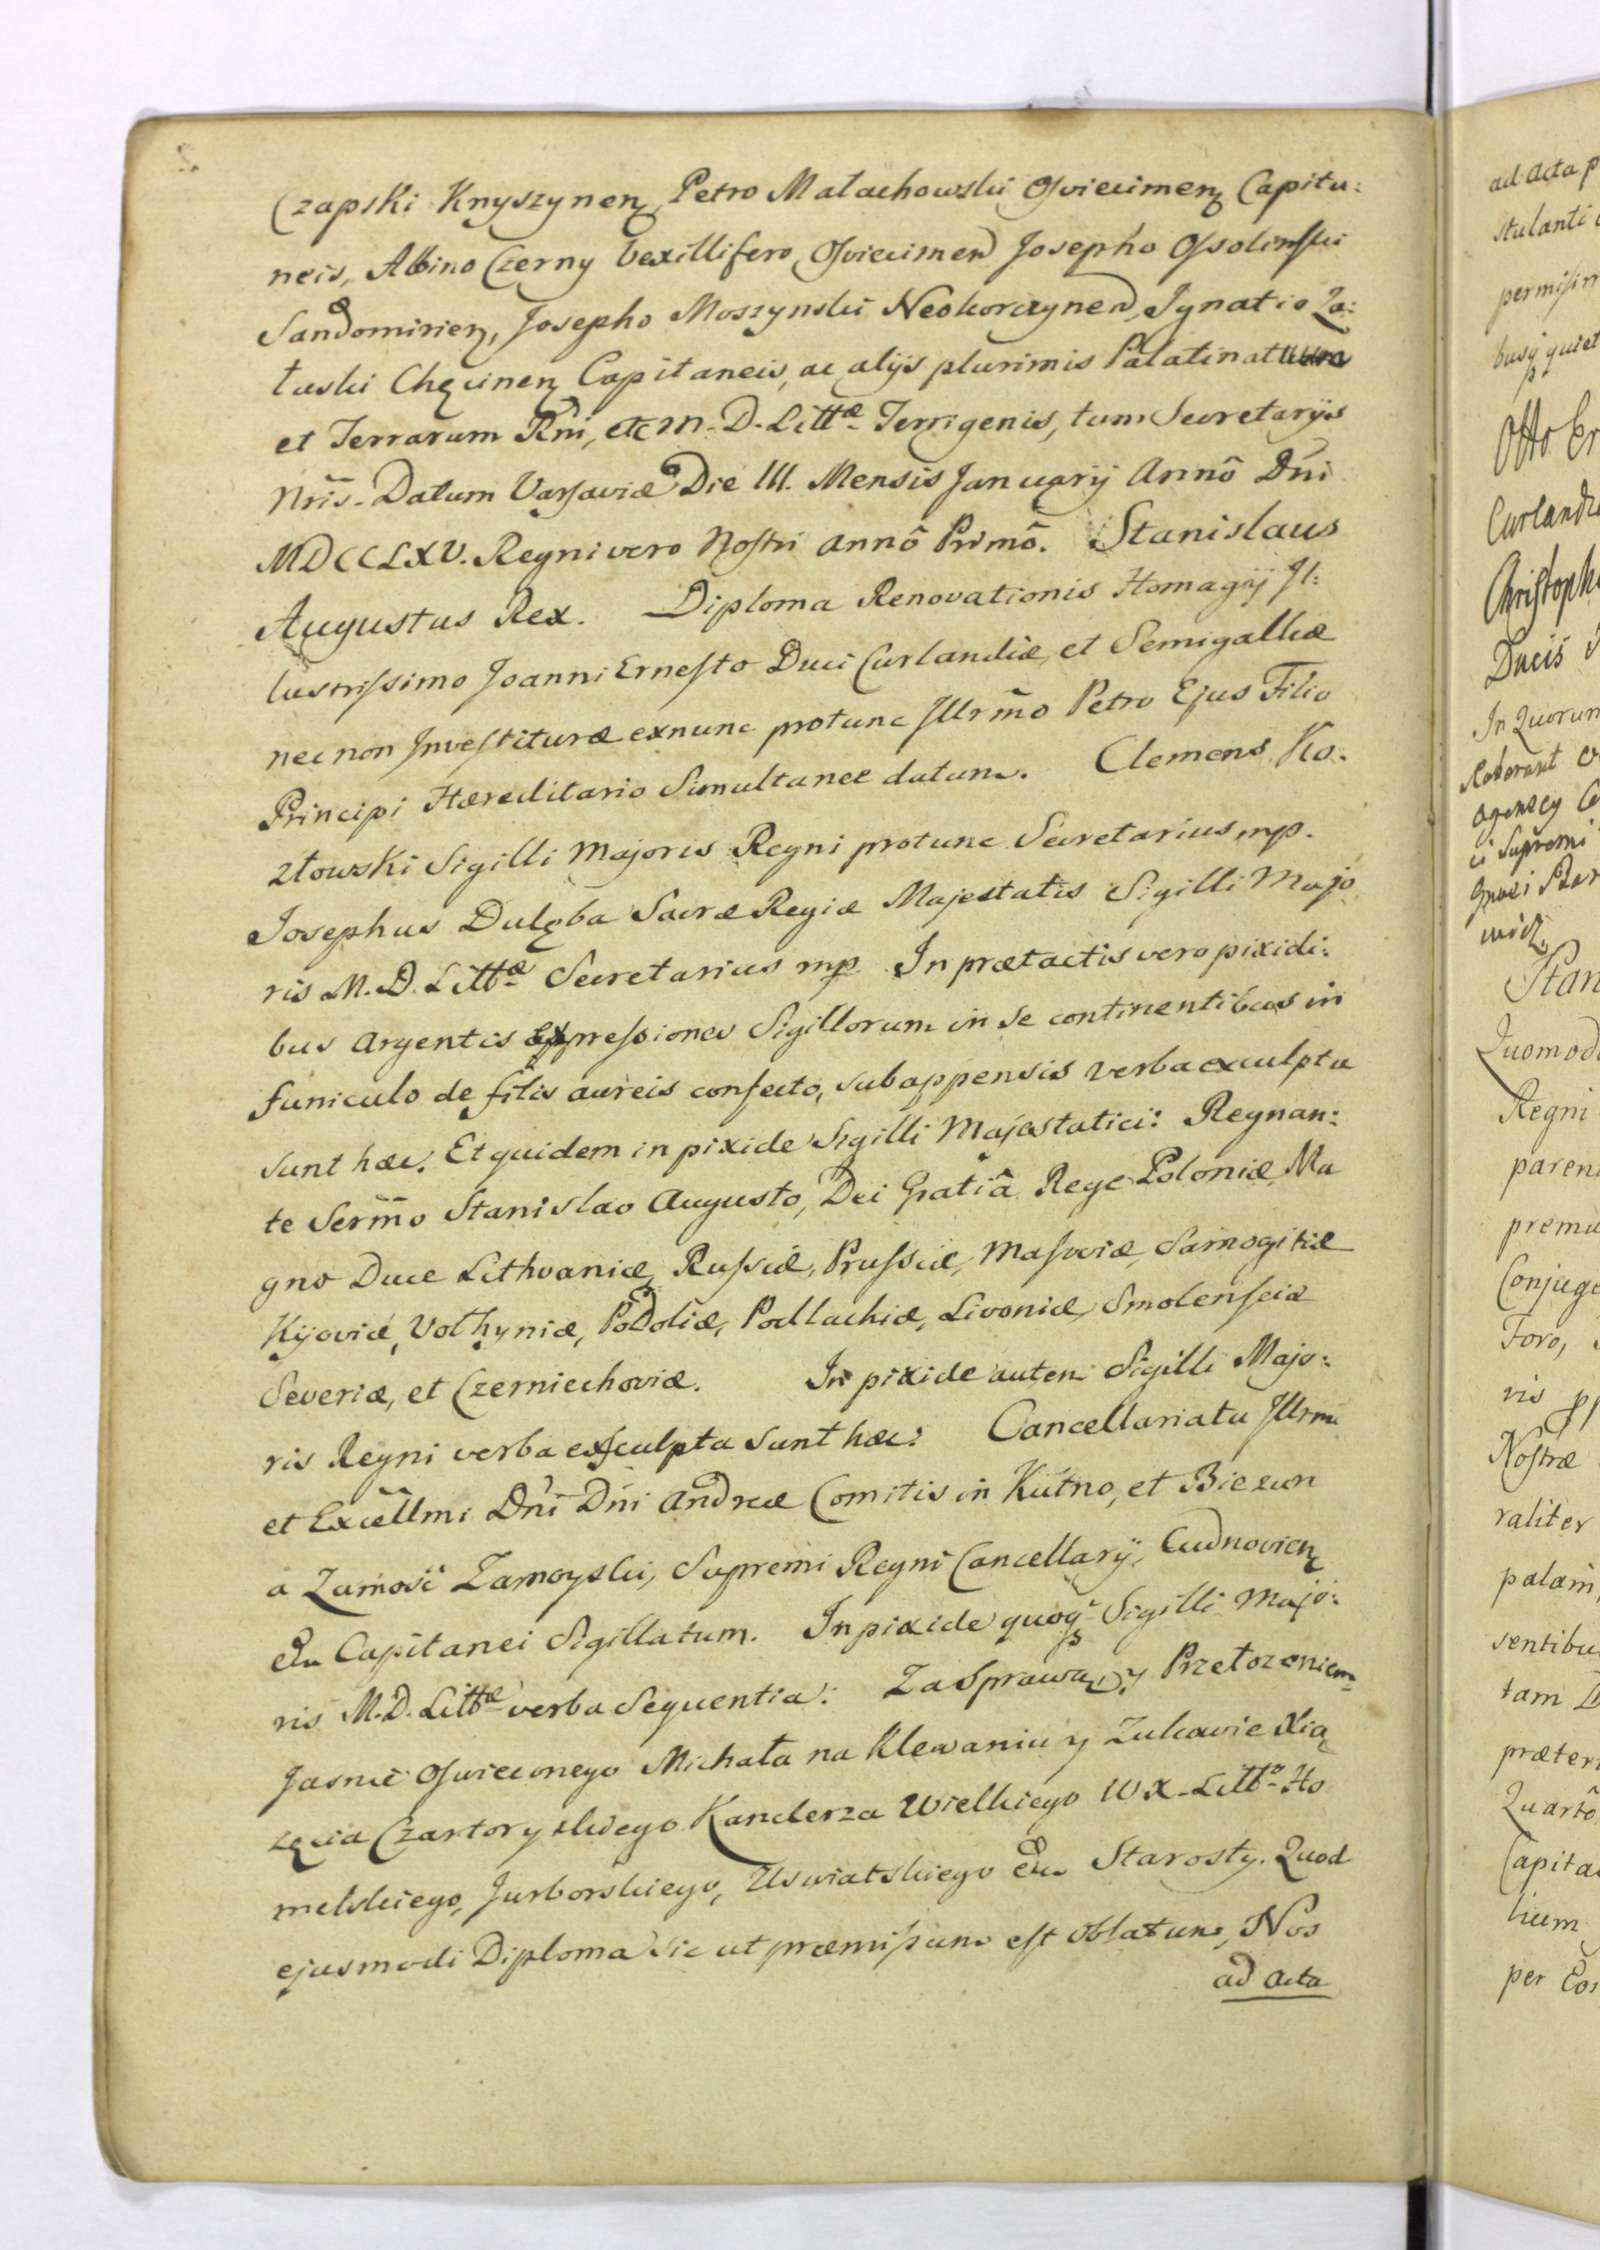 Czapski Knyszynen, Petro Małachowski Osviecimen Capita:
neis, Albino Czerny Vexillifero Osviecimen Josepho Ossolinski
Sandomirien, Josepho Moszynski Neokorczynen, Ignatio Za:
łuski Chęcinen Capitaneis, ac alijs plurimis Palatinatuum
et Terrarum Rni, etc M. D. Littæ Terrigenis, tum Secretarijs
Nris. Datum Varsaviæ Die III. Mensis Januarij Annô Dni
MDCCLXV. Regni vero Nostri annô Primô. Stanislaus
Augustus Rex. Diploma Renovationis Homagij Il:
lustrissimo Joanni Ernesto Duci Curlandiæ, et Semigalliæ
nec non Investituræ exnunc protunc Illrmo Petro Ejus Filio
Principi Hæreditario Simultanee datum. Clemens Ko:
złowski Sigilli Majoris Regni protunc Secretarius mp.
Josephus Dulęba Sacræ Regiæ Majestatis Sigilli Majo
ris M. D. Littæ Secretarius mp In prætactis vero pixidi:
bus argenteis expressiones Sigillorum in se continentibus in
funiculo de filis aureis confecto, subappensis verba exculpta
sunt hæc. Et quidem in pixide Sigilli Majestatici: Regnan:
te Sermo Stanislao Augusto, Dei Gratiâ Rege Poloniæ, Ma
gno Duce Lithvaniæ, Russiæ, Prussiæ, Masoviæ, Samogitiæ
Kijoviæ, Volhyniæ, Podoliæ, Podlachiæ, Livoniæ, Smolensciæ
Severiæ, et Czerniechoviæ. In pixide autem Sigilli Majo:
ris Regni verba exsculpta sunt hæc: Cancellariatu Illrmi
et Excellmi Dni Dni Andreæ Comitis in Kutno, et Biezun
a Zamość Zamoyski, Supremi Regni Cancellarij, Cudnovien
Etc Capitanei Sigillatum. In pixide quoq Sigilli Majo:
ris M. D. Littæ verba sequentia: Za Sprawą, y Przełożeniem
Jasnie Oswieconego Michała na Klewaniu y Zukowie Xią
zęcia Czartoryskiego Kanclerza Wielkiego W. X. Litto Ho
melskiego, Jurborskiego, Uswiatskiego Etc Starosty. Quod
ejusmodi Diploma sic ut præmissum est oblatum, Nos
ad acta
ad acta p
stulanti
permisim
busq quiet
Otto Er
Curlandi
Christoph
Ducis
In Quorum
Roborant
Quomodo
Regni
paren
premu
Conjuge
Foro,
ris
Nostræ
raliter
palam,
sentibu
tam
præter
Quartô
Capita
lium
per